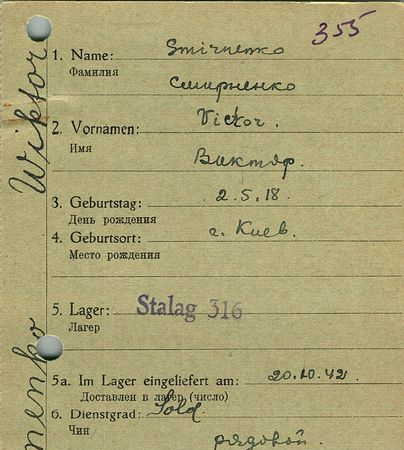 355
1. Name: Smirnenko
Фамилия
Смирненко
2. Vornamen: Victor.
Имя
Виктяр.
3. Geburtstag: 2.5.18.
День рождения
4. Geburtsort: г. Киев.
Место рождения
5. Lager: Stalag 316
Лагер
5a. Im Lager eingeliefert am: 20.10.42
Доставлен в лагер (число)
6. Dienstgrad: Sold.
Чин
рядовой.
Wiktor
nenko